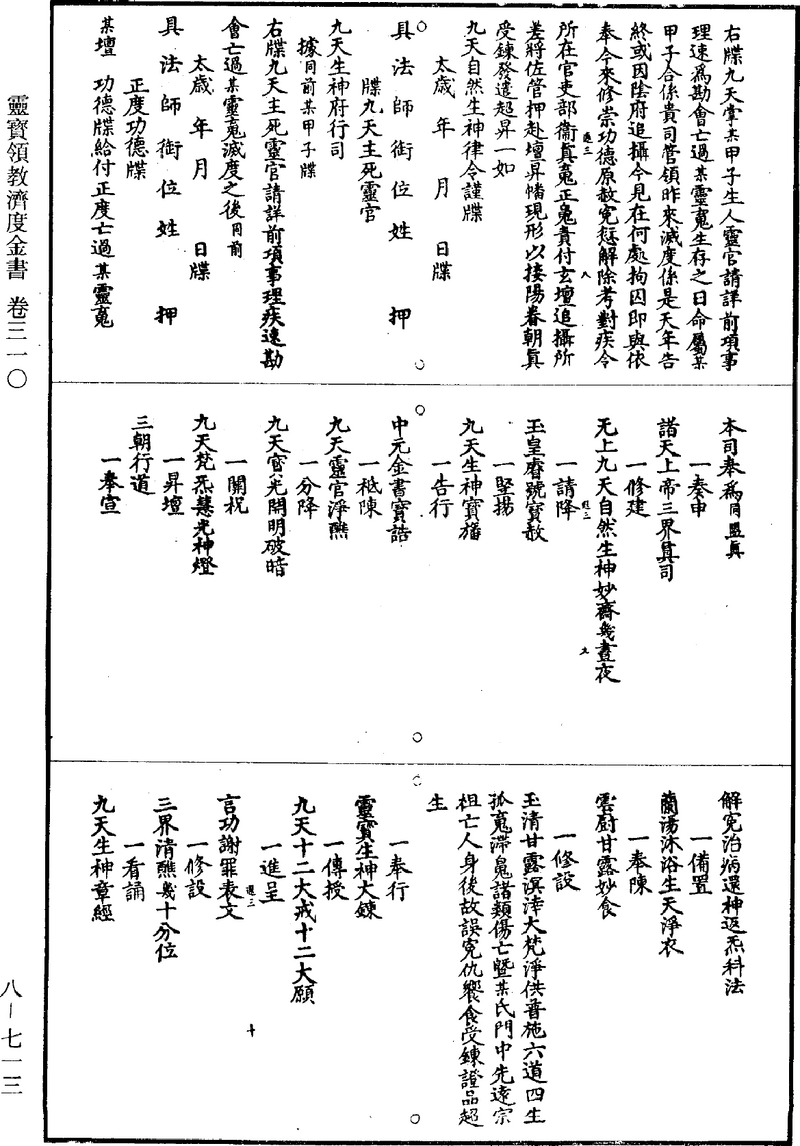 靈寶領教濟度金書 卷三一〇
八—七一三
右牒九天掌某甲子生人靈官請詳前項事
理速爲勘會亡過某靈䰟生存之日命屬某
甲子合係貴司管領昨來滅度係是天年告
終或因陰府追攝今見在何處拘囚即與依
奉今來修崇功德原赦寃愆解除考對疾令
所在官吏部衛真䰟正䰟責付玄壇追攝所
差將佐管押赴壇昇幡現形以接陽眷朝真
受鍊發遣超昇一如
九天自然生神律令謹牒
太歲 年 月 日牒
具法師銜位姓 押
牒九天主死靈官
九天生神府行司
據同前某甲子牒
右牒九天主死靈官請詳前項事理疾速勘
會亡過某靈䰟滅度之後同前
太歲 年 月 日牒
具法師銜位姓 押
正度功德牒
某壇 功德牒給付正度亡過某靈䰟
本司奉爲同盟真
一奏申
諸天上帝三界真司
一修建
无上九天自然生神妙齋幾晝夜
一請降
玉皇睿號寳赦
一竪揚
九天生神寳旛
一告行
中元金書寳誥
一祗陳
九天靈官淨醮
一分降
九天寳光開明破暗
一關祝
九天梵炁慧光神燈
一昇壇
三朝行道
一奉宣
解寃治病還神返炁科法
一備置
蘭湯沐浴生天淨衣
一奉陳
雲厨甘露妙食
一修設
玉清甘露溟涬大梵淨供普施六道四生
孤䰟滯䰟諸類傷亡曁某氏門中先遠宗
祖亡人身後故誤寃仇饗食受鍊證品超
生
一奉行
靈寳生神大鍊
一傳授
九天十二大戒十二大願
一進呈
言功謝罪表文
一修設
三界清醮幾十分位
一看誦
九天生神章經